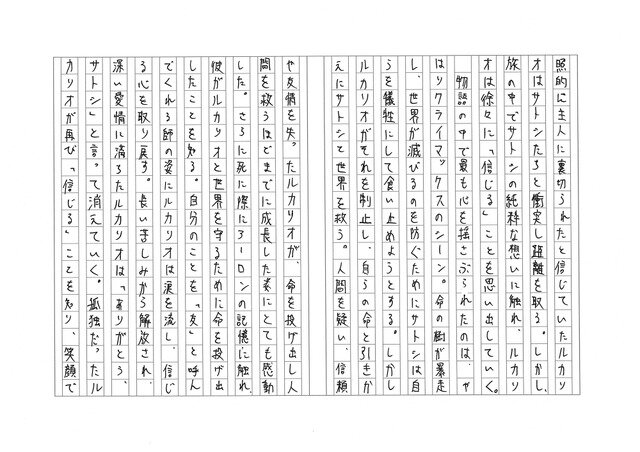 照的に主人に裏切られたと信じていたルカリ
オはサトシたちと衝突し距離を取る。しかし、
旅の中でサトシの純粋な想いに触れ、ルカリ
オは徐々に「信じる」ことを思い出していく。
物語の中で最も心を揺さぶられたのは、や
はりクライマックスのシーン。命の樹が暴走
し、世界が滅びるのを防ぐためにサトシは自
らを犠牲にして食い止めようとする。しかし
ルカリオがそれを制止し、自らの命と引きか
えにサトシと世界を救う。人間を疑い、信頼
や友情を失ったルカリオが、命を投げ出し人
間を救うほどまでに成長した姿にとても感動
した。さらに死に際にアーロンの記憶に触れ、
彼がルカリオと世界を守るために命を投げ出
したことを知る。自分のことを「友」と呼ん
でくれる師の姿にルカリオは涙を流し、信じ
る心を取り戻す。長い苦しみから解放され、
深い愛情に満ちたルカリオは「ありがとう、
サトシ」と言って消えていく。孤独だったル
カリオが再び「信じる」ことを知り、笑顔で